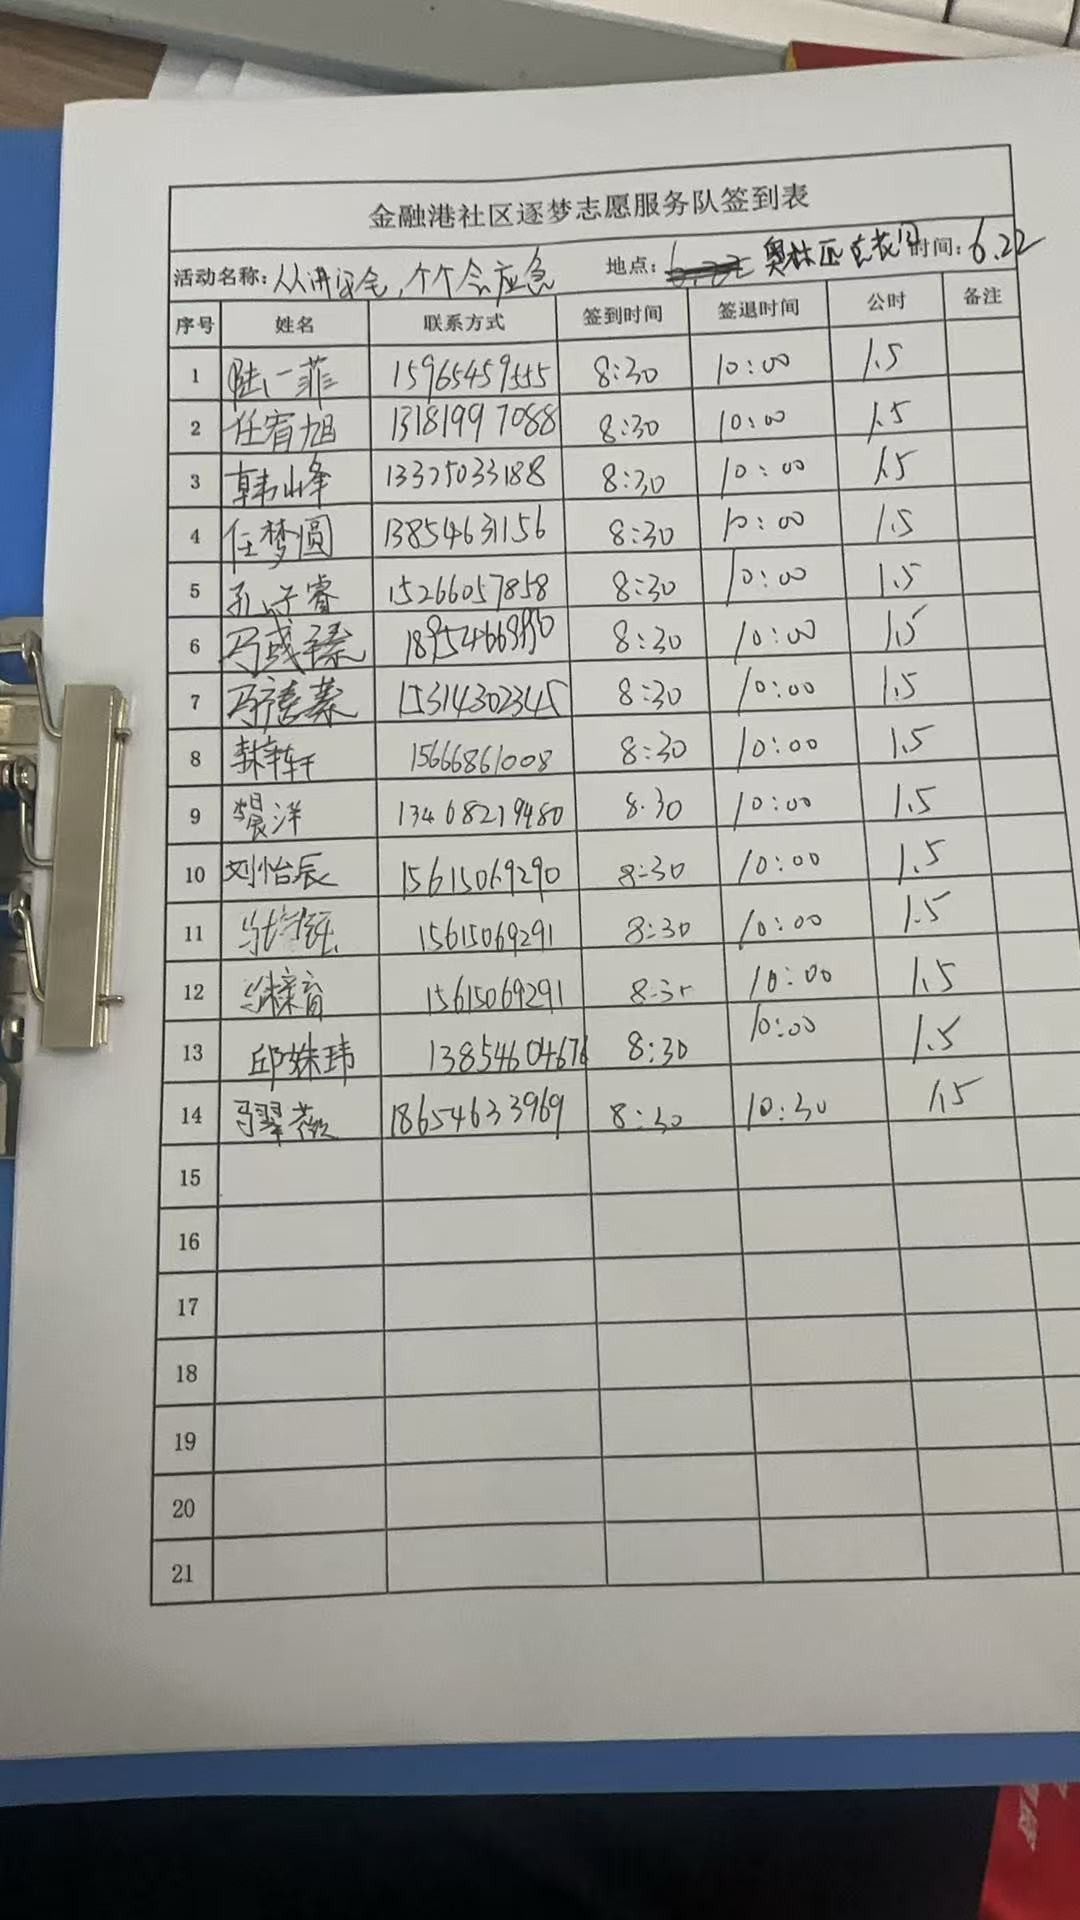 金融港社区逐梦志愿服务队签到表
活动名称：人人讲安全，个个会应急 地点： 奥林匹克花园 时间：6.22
序号 姓名 联系方式 签到时间 签退时间 公时 备注
1 陆一菲 15965459555 8:30 10:00 1.5
2 任宥旭 13181997088 8:30 10:00 1.5
3 韩峰 13375033188 8:30 10:00 1.5
4 任梦圆 13854631156 8:30 10:00 1.5
5 孔子睿 15266057858 8:30 10:00 1.5
6 马 8:30 10:00 1.5
7 马 15314302345 8:30 10:00 1.5
8 15666861008 8:30 10:00 1.5
9 洋 13468219480 8.30 10:00 1.5
10 刘怡辰 15615069290 8:30 10:00 1.5
11 15615069291 8:30 10:00 1.5
12 15615069291 8:30 10:00 1.5
13 邱姝玮 13854604676 8:30 10:00 1.5
14 马翠薇 18654633969 8:30 10:30 1.5
15
16
17
18
19
20
21